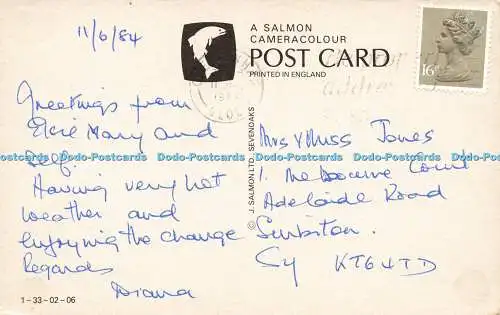 11/6/84
Greetings from
Elsie Mary and
Delf.
Having very hot
weather and
enjoying the change
Regards
Diana
1-33-02-06
A SALMON
CAMERACOLOUR
POST CARD
PRINTED IN ENGLAND
© J. SALMON LTD., SEVENOAKS
16
Mrs & Miss Jones
1 Melbourne Court
Adelaide Road
Surbiton.
Sy KT6 4TD
Dodo-Postcards Dodo-Postcards Dodo-Postcards Dodo-Postcards Dodo-Postcards Dodo-Postcards